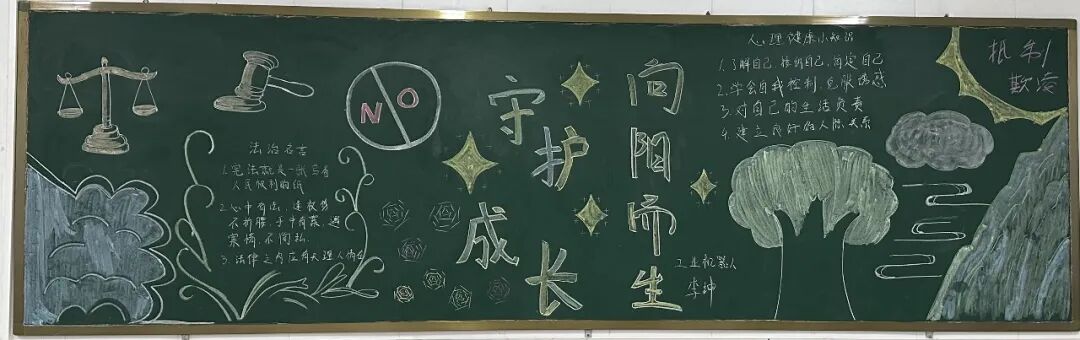 NO
法治名言
1.宪法就是一张写着
人民权利的纸
2.心中有法,
不折腰,手中有
寒情,不徇私.
3.法律之内应有天理人情在
守护
成长
向阳而生
工业机器人
李坤
心理健康小知识
1.了解自己 接纳自己,肯定自己
2.学会自我控制,克服诱惑
3.对自己的生活负责
4.建立良好的人际关系
抵制
欺凌